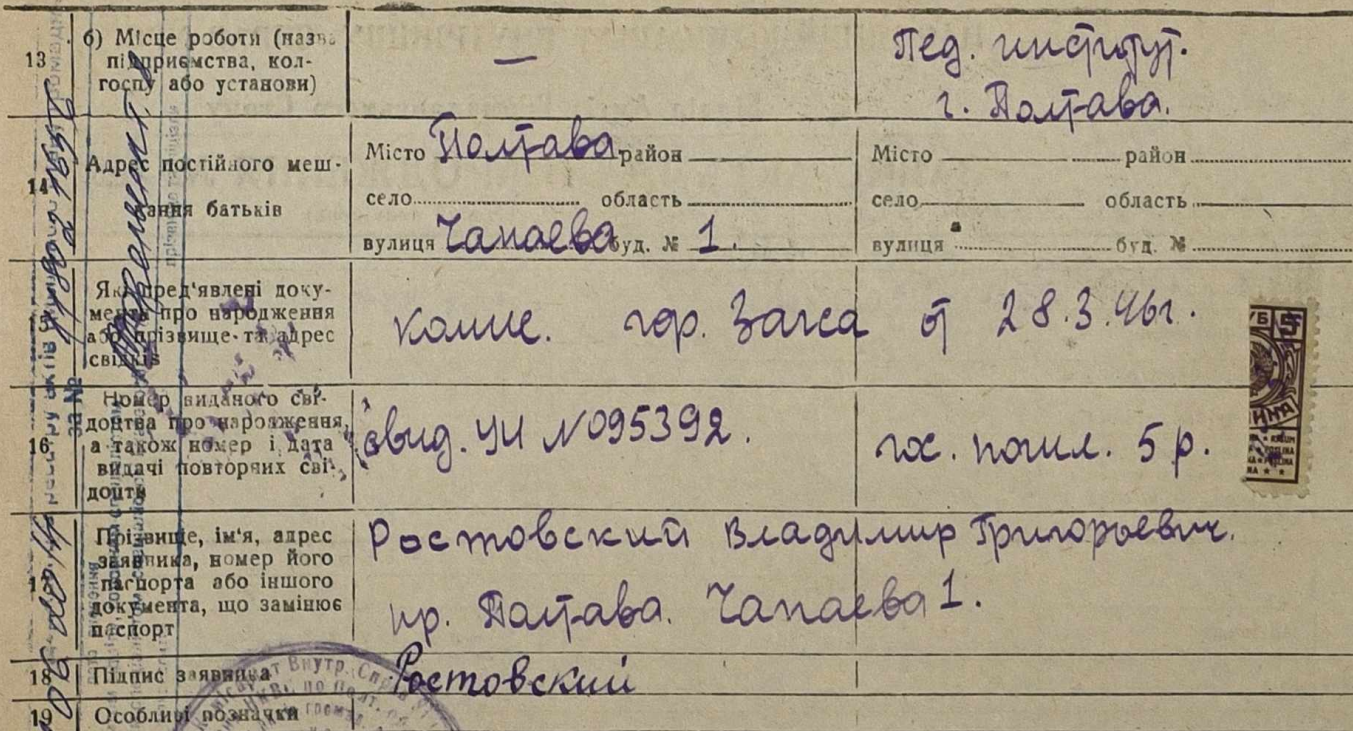 13 б) Місце роботи (назва підприємства, колгоспу або установи) — Пед. институт. г. Полтава.
14 Адрес постійного мешкання батьків
Місто Полтава район Місто район
село область село область
вулиця Чапаева буд. № 1. вулиця буд. №
15 Які пред'явлені документи про народження або прізвище та адрес свідків
комис. гор. Загса от 28.3.46г.
16 Номер виданого свідоцтва про народження, а також номер і дата видачі повторних свідоцтв
свид. УИ №095392. гос. пошл. 5 р.
17 Прізвище, ім'я, адрес заявника, номер його паспорта або іншого документа, що замінює паспорт
Ростовский Владимир Григорьевич.
пр. Полтава. Чапаева 1.
18 Підпис заявника Ростовский
19 Особливі позначки
за №
Внутр. Справ
по Полт.